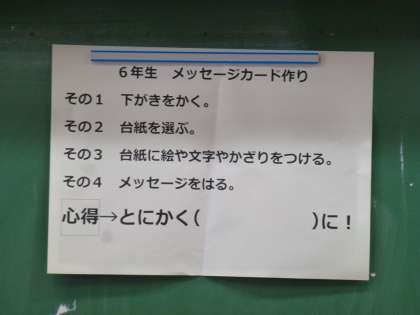 6年生　メッセージカード作り
その1　下がきをかく。
その2　台紙を選ぶ。
その3　台紙に絵や文字やかざりをつける。
その4　メッセージをはる。
心得→とにかく(　　　　　　)に!